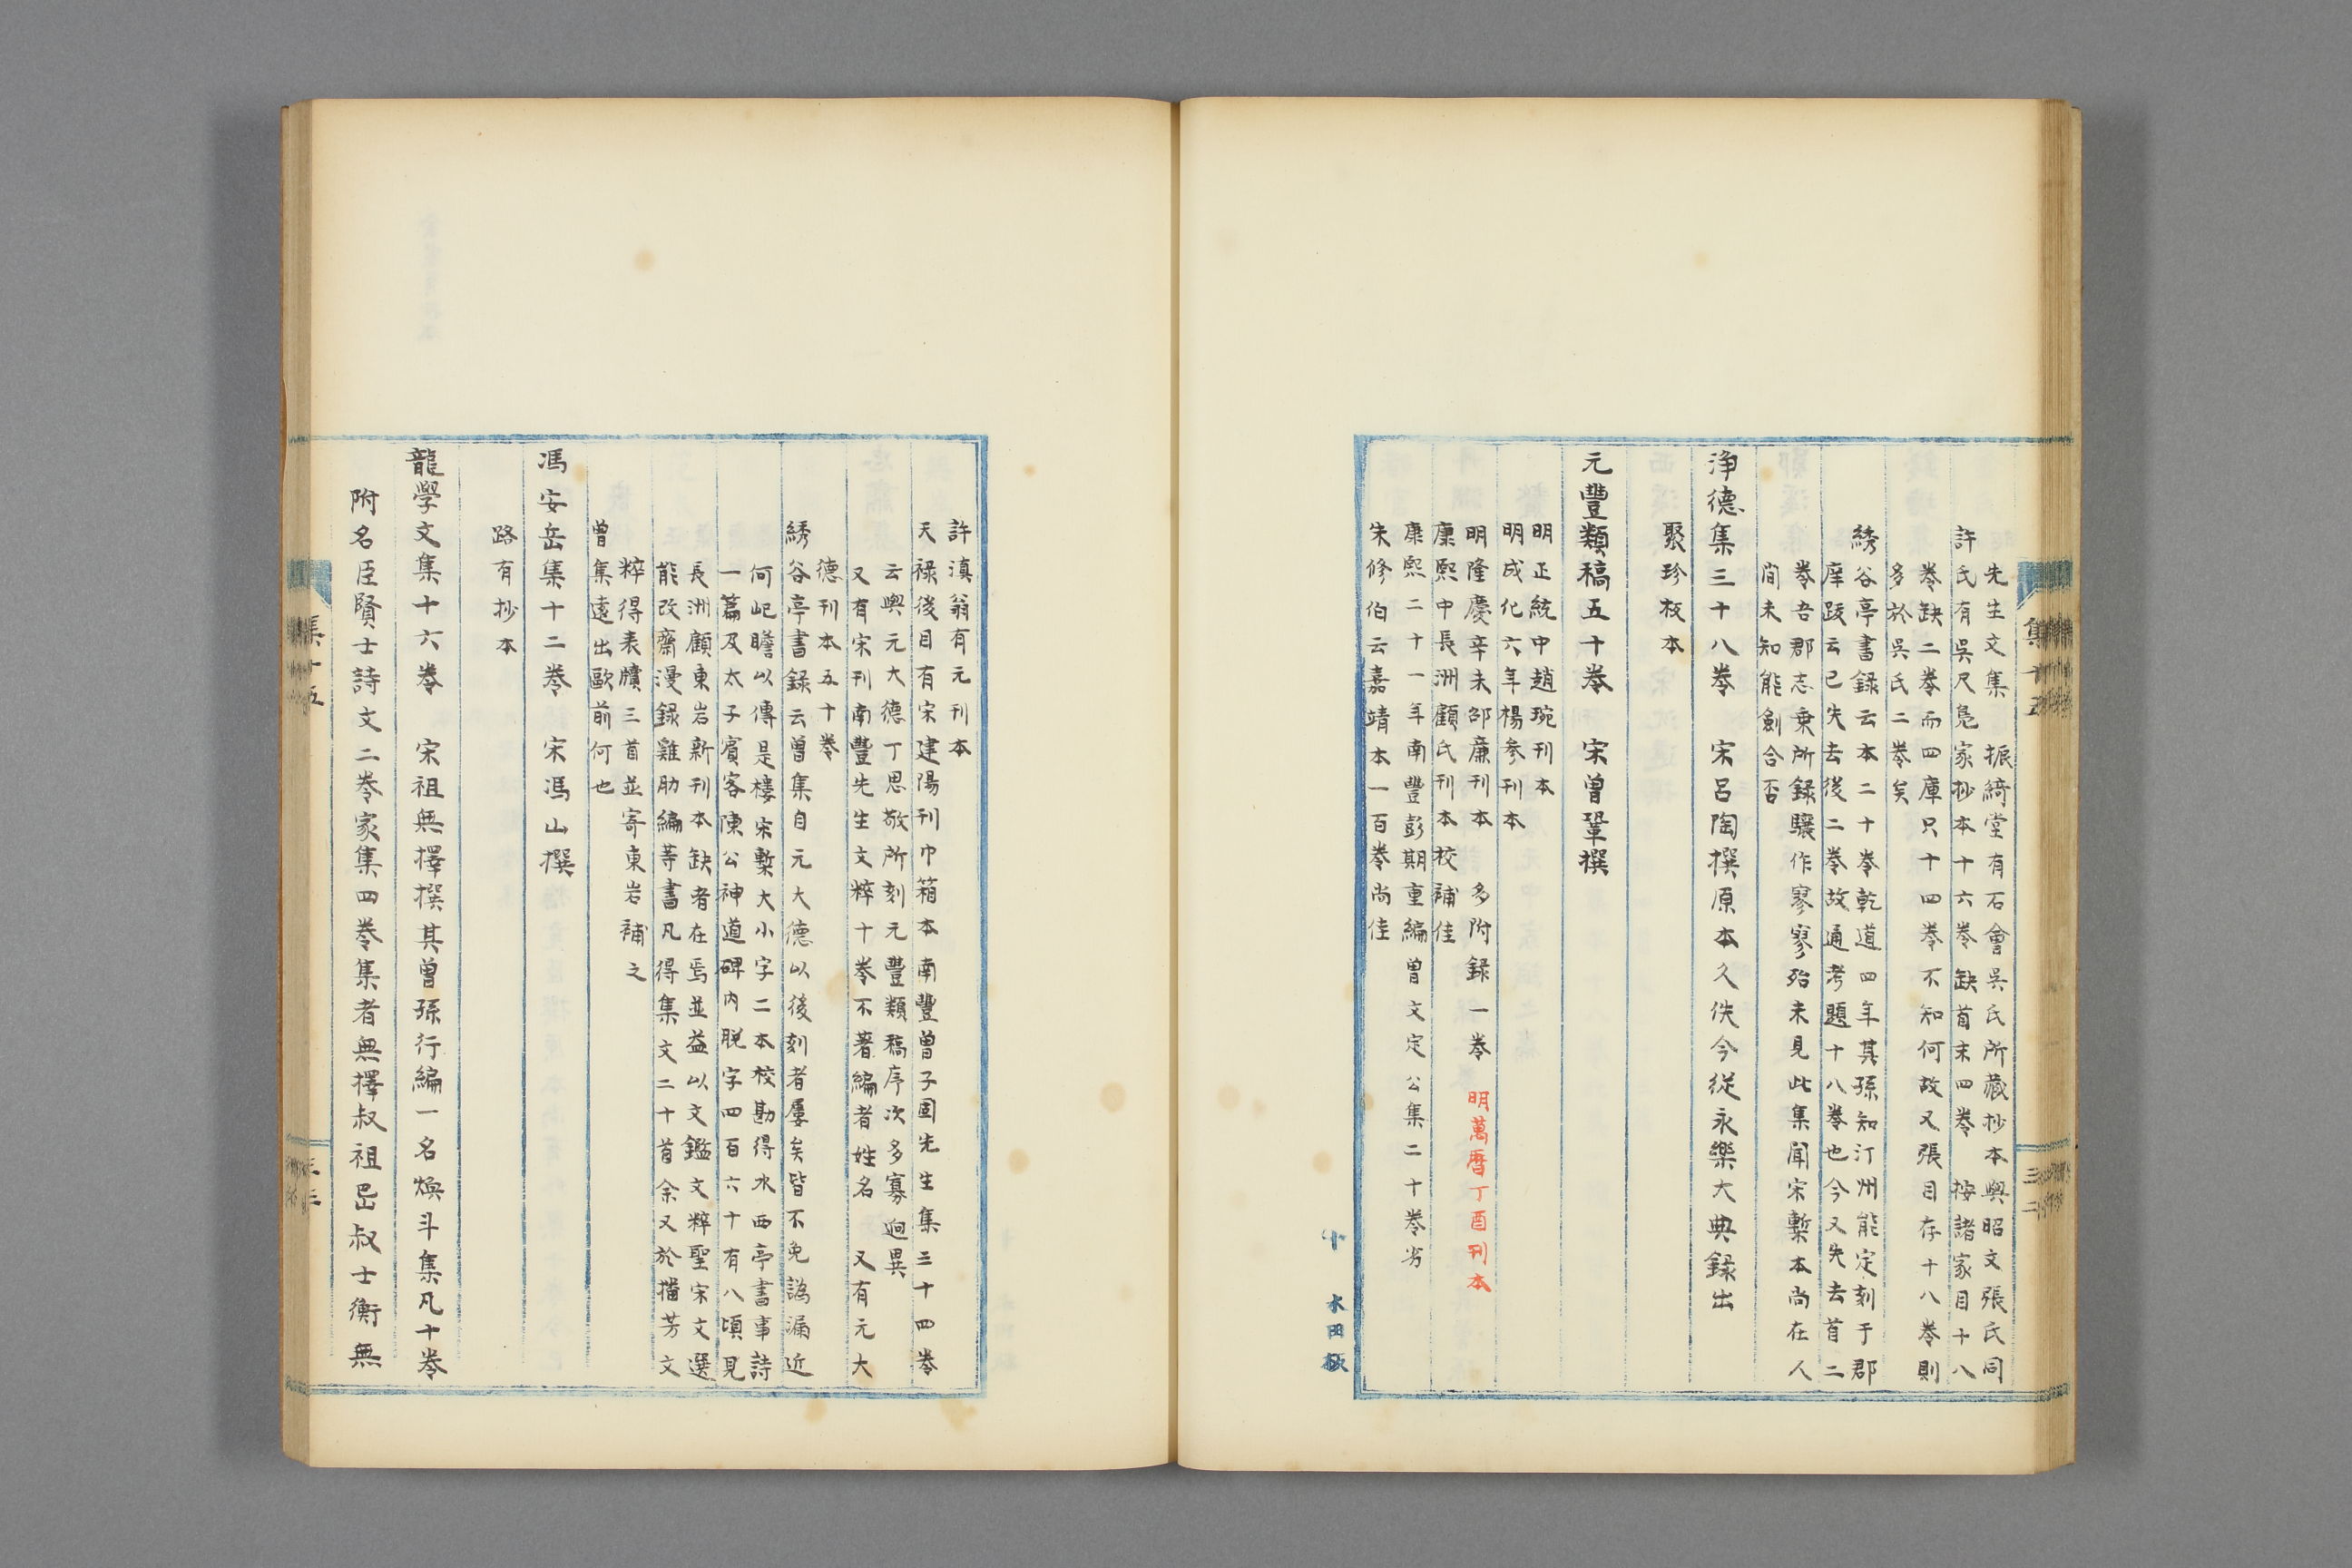 先生文集 振綺堂有石會吳氏所藏抄本與昭文張氏同
許氏有吳尺鳧家抄本十六卷缺首末四卷 按諸家目十八
卷缺二卷而四庫只十四卷不知何故又張目存十八卷則
多於吳氏二卷矣
綉谷亭書録云本二十卷乾道四年其孫知汀州能定刻于郡
庠跋云已失去後二卷故通考題十八卷也今又失去首二
卷吾郡志乘所録驤作寥寥殆未見此集聞宋槧本尚在人
間未知能劍合否
淨德集三十八卷 宋呂陶撰原本久佚今從永樂大典録出
聚珍板本
元豐類稿五十卷 宋曾鞏撰
明正統中趙琬刊本
明成化六年楊參刊本
明隆慶辛未邵廉刊本 多附録一卷 明萬曆丁酉刊本
康熙中長洲顧氏刊本校補佳
康熙二十一年南豐彭期重編曾文定公集二十卷劣
朱修伯云嘉靖本一百卷尚佳
集十五
三二
十
木田板
許滇翁有元刊本
天禄後目有宋建陽刊巾箱本南豐曾子固先生集三十四卷
云與元大德丁思敬所刻元豐類稿序次多寡迥異
又有宋刊南豐先生文粹十卷不著編者姓名 又有元大
德刊本五十卷
綉谷亭書録云曾集自元大德以後刻者屢矣皆不免譌漏近
何屺瞻以傳是樓宋槧大小字二本校勘得水西亭書事詩
一篇及太子賓客陳公神道碑内脱字四百六十有八頃見
長洲顧東岩新刊本缺者在焉並益以文鑑文粹聖宋文選
能改齋漫録雞肋編等書凡得集文二十首余又於播芳文
粹得表牘三首並寄東岩補之
曾集遠出歐前何也
馮安岳集十二卷 宋馮山撰
路有抄本
龍學文集十六卷 宋祖無擇撰其曾孫行編一名煥斗集凡十卷
附名臣賢士詩文二卷家集四卷集者無擇叔祖岊叔士衡無
集十五
三三